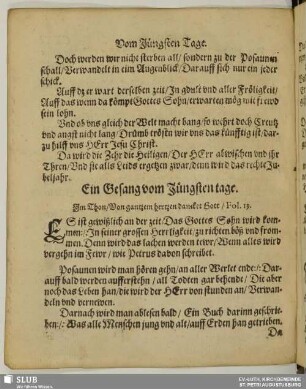 Vom Jüngsten Tage.
Doch werden wir nicht sterben all/ sondern zu der Posaunn
schall/ Verwandelt in eim Augenblick/ Darauff sich nur ein jeder
schick.
Auff dz er wart derselben zeit/ In gdult vnd aller fröligkeit/
Auff das wenn da kömpt Gottes Sohn/ erwarten mög mit frewd
sein lohn.
Vnd ob vns gleich der Welt macht bang/ so wehrt doch Creutz
vnd angst nicht lang/ Drümb tröstn wir vns das künfftig ist/ dar-
zu hilff vns HErr Jesu Christ.
Da wird die Zehr die Heiligen/ Der HErr abwischen vnd ihr
Thren/ Vnd sie alls Leids ergetzen zwar/ denn wird das rechte Ju-
beljahr.
Ein Gesang vom Jüngsten tage.
Im Thon/ Von gantzem hertzen dancket Gott/ Fol. 13.
ES ist gewißlich an der zeit/ Das Gottes Sohn wird kom-
men:/: In seiner grossen Herrligkeit/ zu richten böß vnd from-
men. Denn wird das lachen werden tewr/ Wenn alles wird
vergehn im Fewr/ wie Petrus davon schreibet.
Posaunen wird man hören gehn/ an aller Werlet ende:/: Dar-
auff bald werden aufferstehn/ all Todten gar behende/ Die aber
noch das Leben han/ die wird der HErr von stunden an/ Verwan-
deln vnd vernewen.
Darnach wird man ablesen bald/ Ein Buch darinn geschrie-
ben:/: Was alle Menschen jung vnd alt/ auff Erden han getrieben.
Da
SLUB
Wir führen Wissen.
EV.-LUTH. KIRCHGEMEINDE
ST. PETRI AUGUSTUSBURG